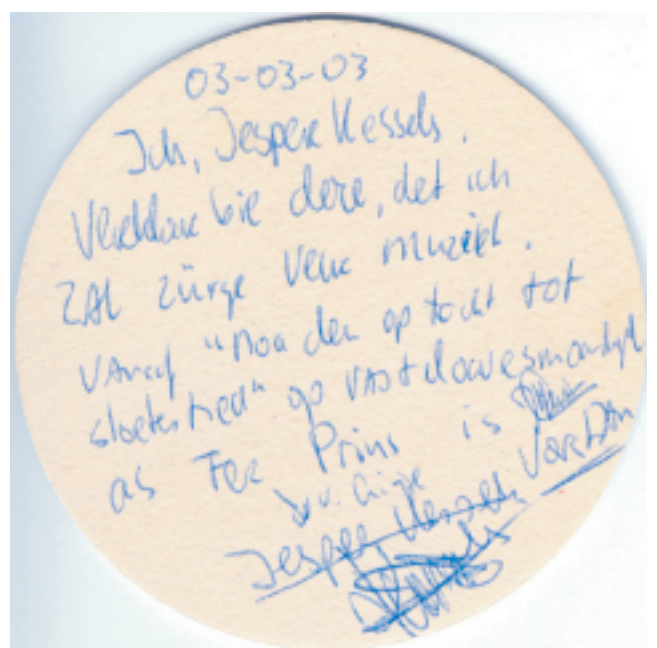 03-03-03
Ich, Jesper Kessels.
Verklaar bie deze, det ich
ZAL zürge veur muziek.
VAnaf "Noa den optocht tot
sloetestied" op VAstelaovesmaondjg
as Fer Prins is
Jesper Kessels